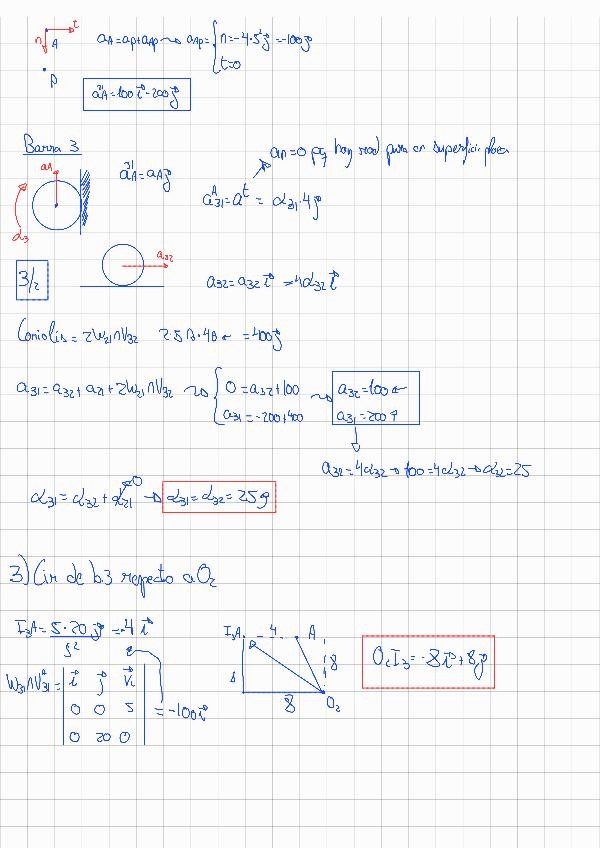 t
n A
P
aA = ap + aAp → aAp = { n = -4·5² j = -100 j
t = 0
aA²¹ = 100 i - 200 j
Barra 3
aA
α3
aA³¹ = aA j
an = 0 pq hay rod pura en superficie plana
a31ᴬ = aᵗ = α31·4 j
3/2
a32
a32 = a32 i = 4α32 i
Coriolis = 2ω21 ∧ V32 2·5 · 40 ← = 400 j
a31 = a32 + a21 + 2ω21 ∧ V32 → { 0 = a32 + 100
a31 = -200 + 400
→ a32 = 100 ←
a31 = 200 ↑
a32 = 4α32 → 100 = 4α32 → α32 = 25
α31 = α32 + α21 0 → α31 = α32 = 25
3) Cir de b.3 respecto a O2
I3A = 5·20 = -4 i
5²
ω31 ∧ V31ᴬ = | i j k |
| 0 0 5 | = -100 i
| 0 20 0 |
I3 A 4 A
8
8
8 O2
O2I3 = -8 i + 8 j